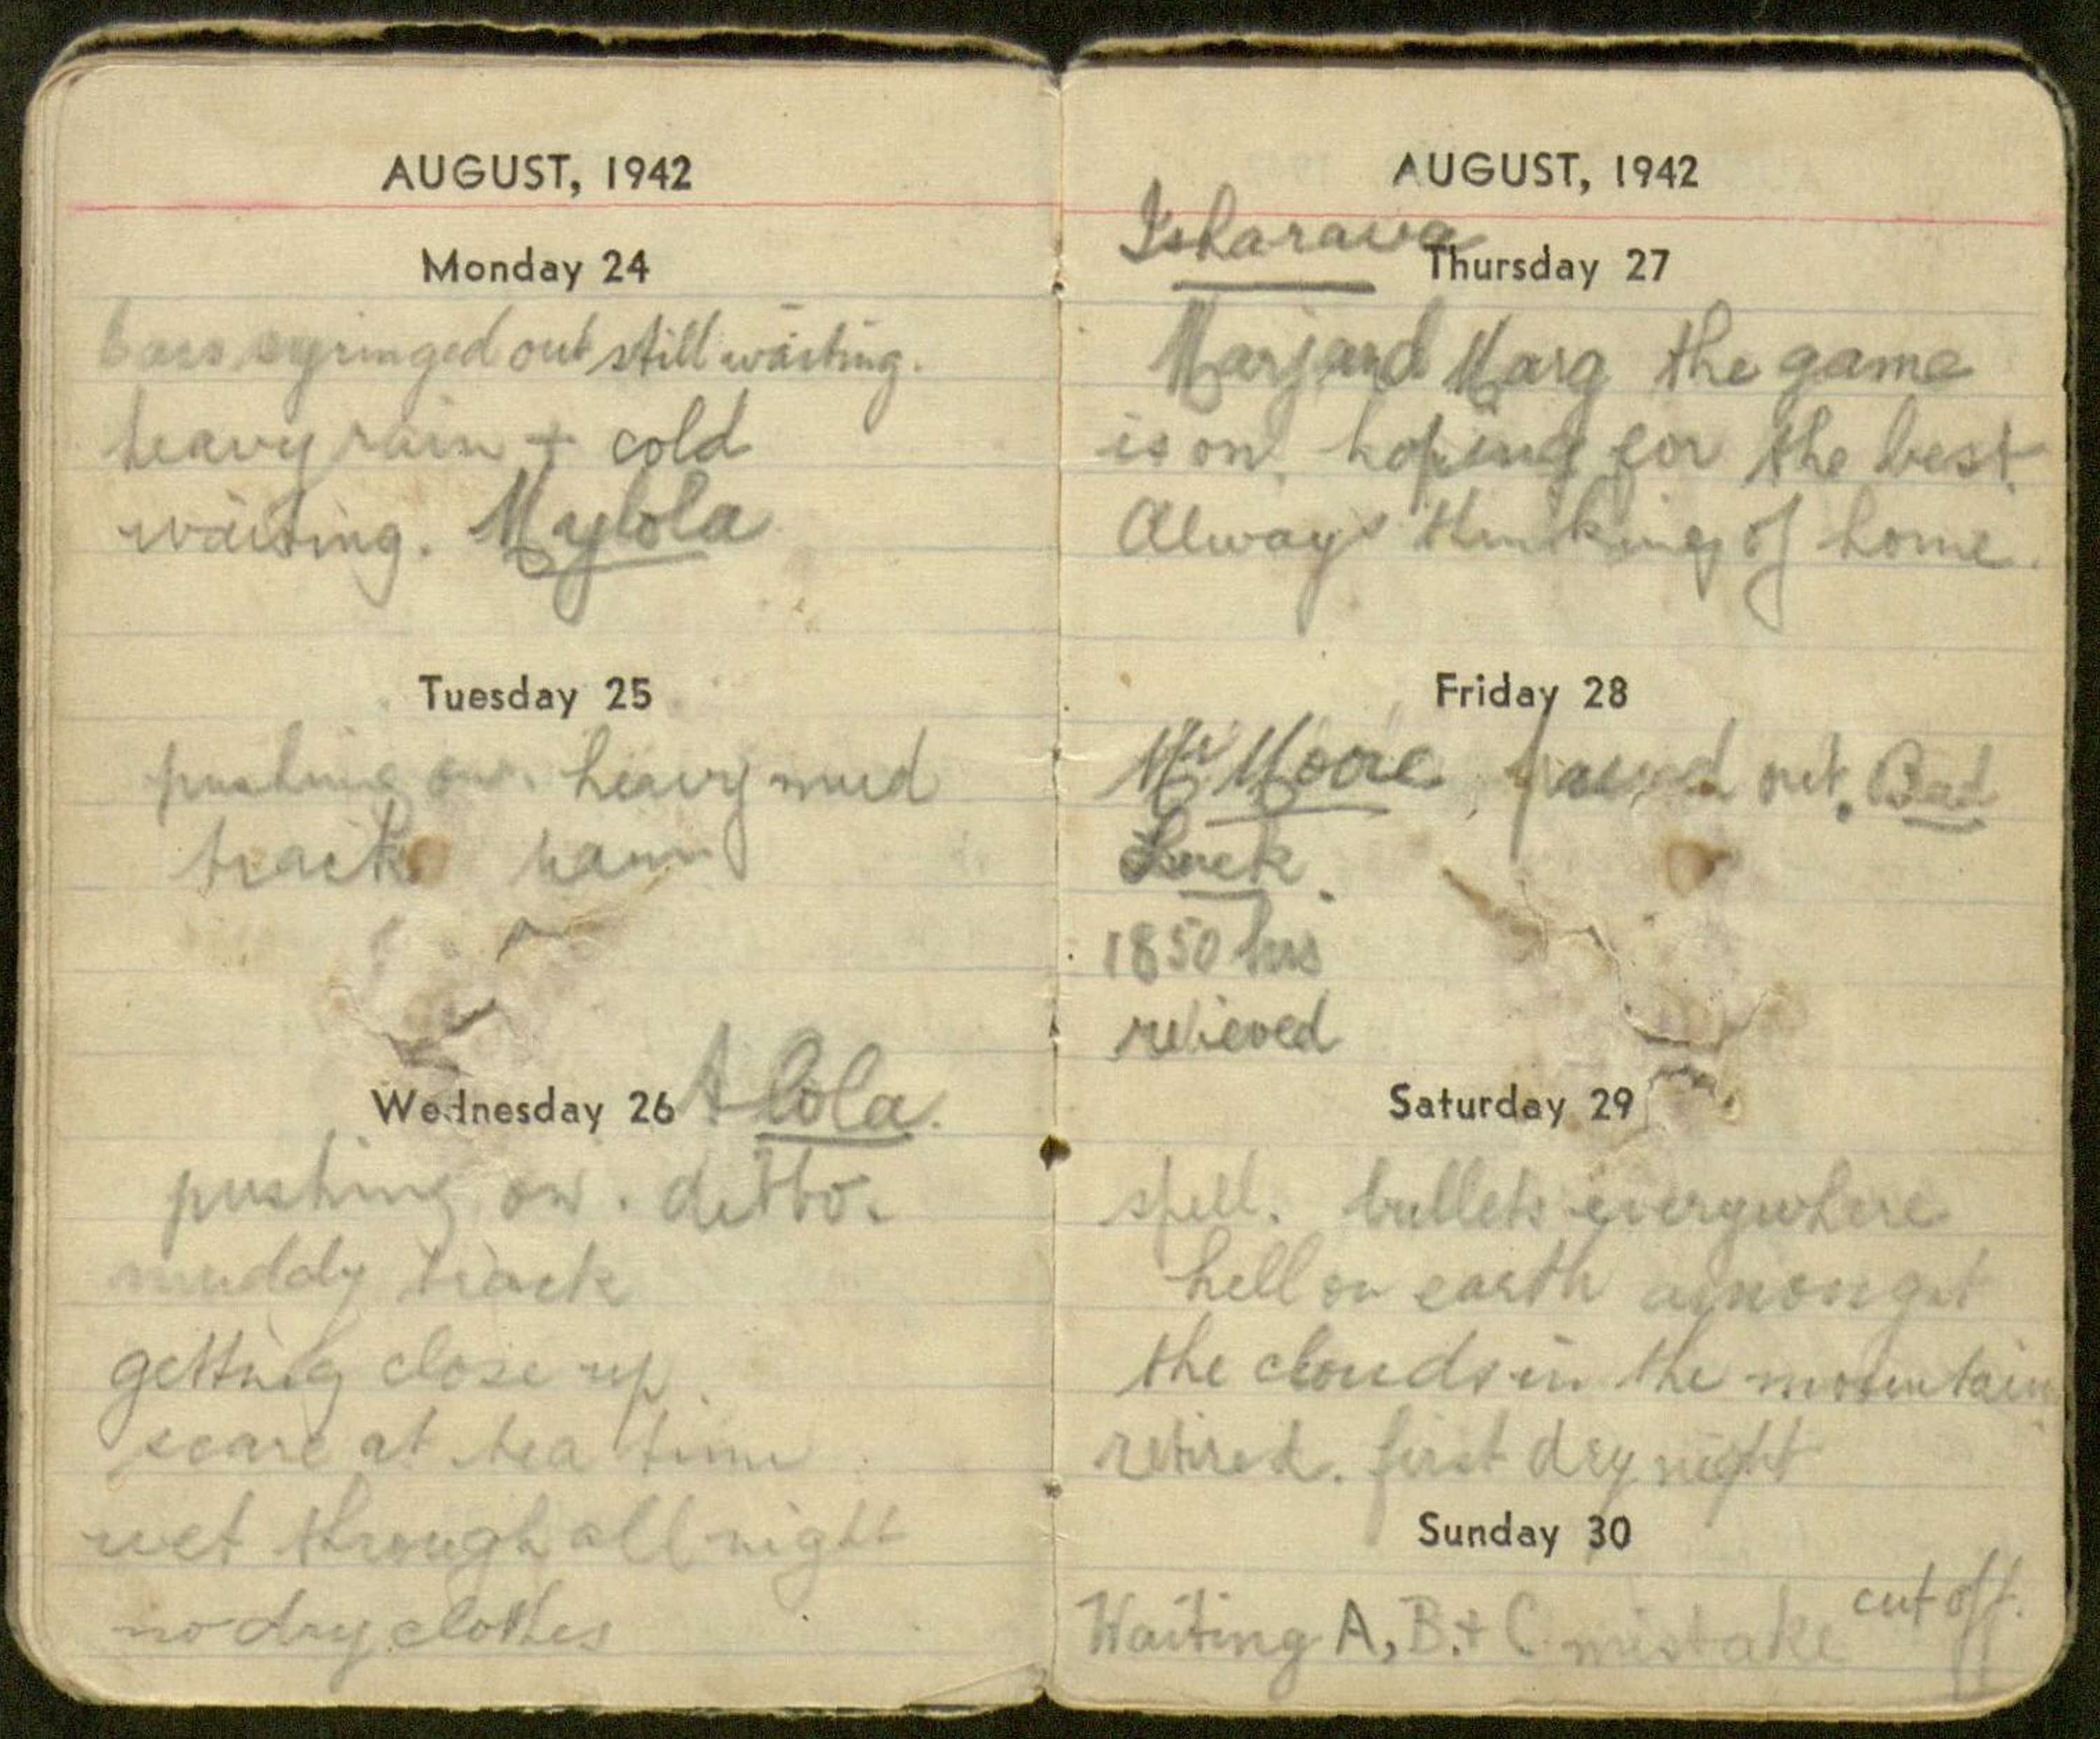 AUGUST, 1942
Monday 24
syringed out still waiting.
heavy rain + cold
waiting. Mylola
Tuesday 25
pushing on. heavy mud
track rain
Wednesday 26 Alola.
pushing on. ditto.
muddy track
getting close up.
scare at tea time
wet through all night
no dry clothes
AUGUST, 1942
Isharava
Thursday 27
Marj and Marg the game
is on, hoping for the best.
Always thinking of home.
Friday 28
Mr Moore, passed out. Bad
Luck.
1850 hrs
relieved
Saturday 29
spell. bullets everywhere
hell on earth amongst
the clouds in the mountain
retired. first dry night
Sunday 30
Waiting A, B. + C mistake cut off.